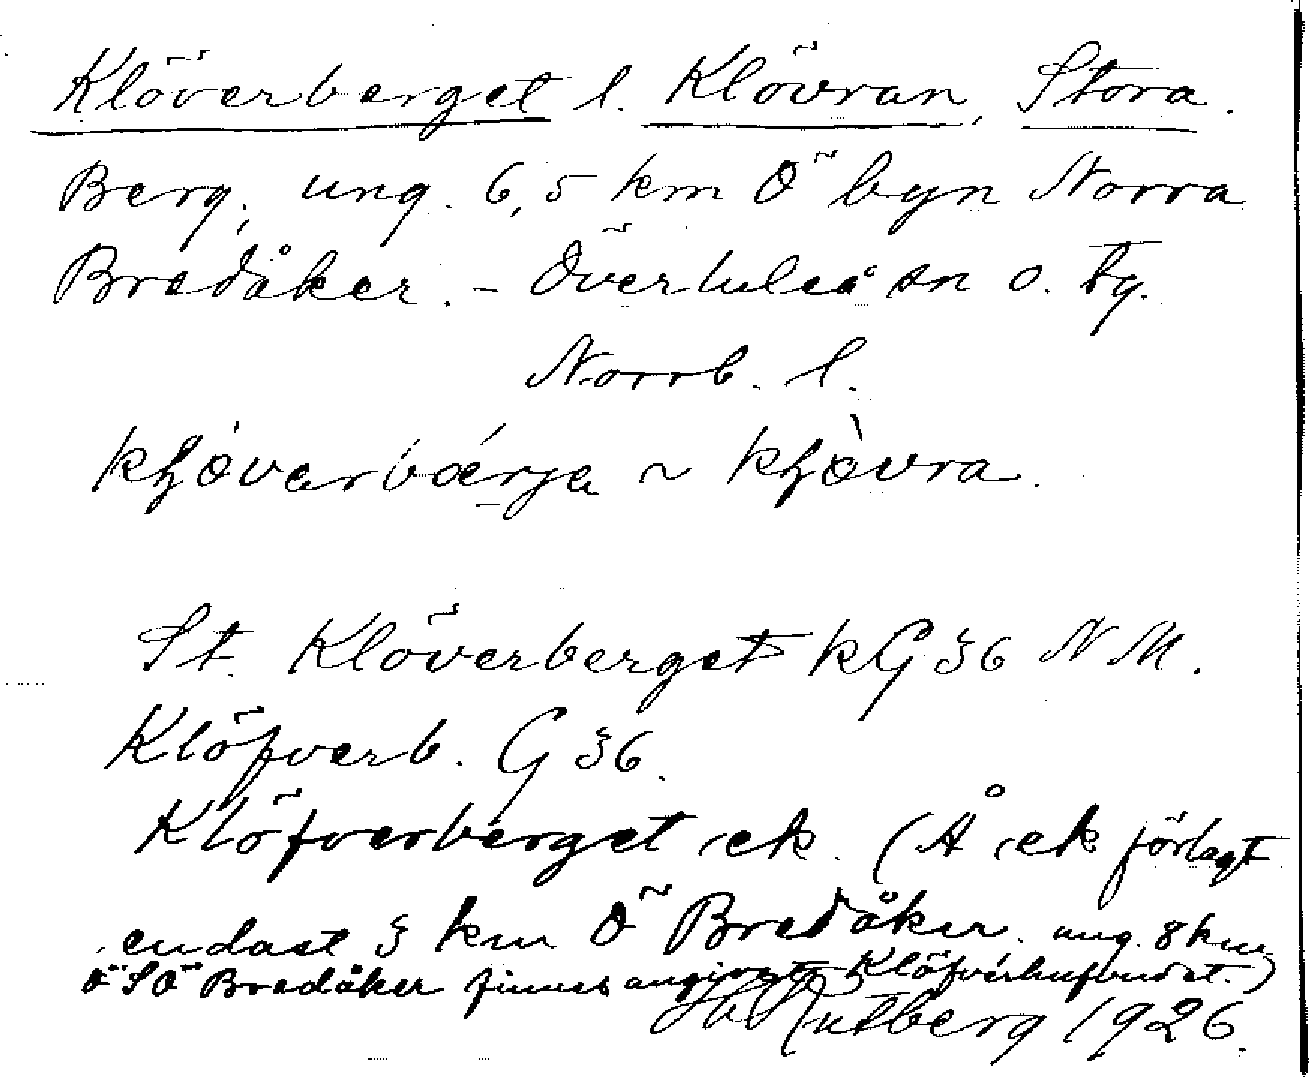 Klöverberget l. Klövran, Stora.
Berg, ung. 6,5 km Ö byn Norra
Bredåker. - Överluleå sn o. tg.
Norrb. l.
~
St. Klöverberget kG 36 N M.
Klöfverb. G 36.
Klöfverberget ek. (Å ek förlagt
endast 3 km Ö Bredåker. ung. 8 km
ÖSÖ Bredåker finnes angivet Klöfverhufvudet.)
Rutberg 1926.